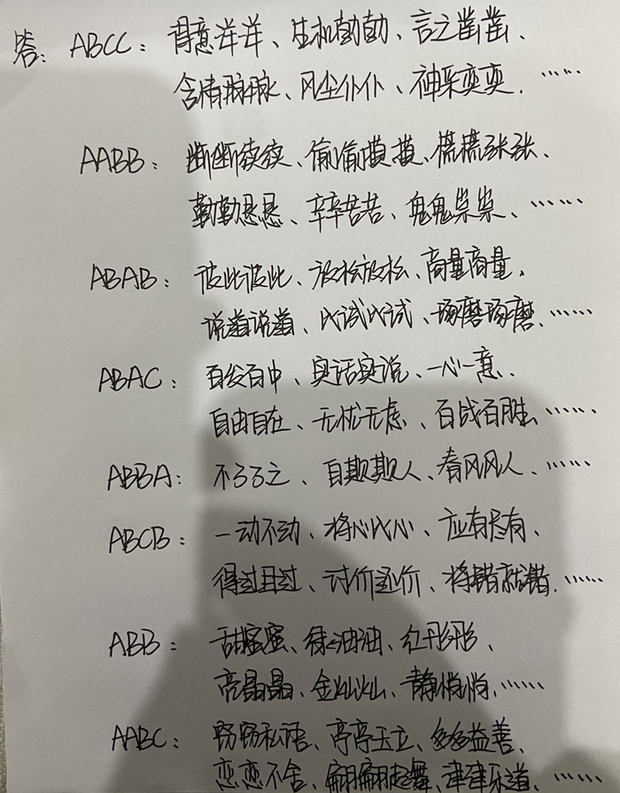 答：ABCC：得意洋洋、生机勃勃、言之凿凿、
含情脉脉、风尘仆仆、神采奕奕、……
AABB：断断续续、偷偷摸摸、慌慌张张、
勤勤恳恳、辛辛苦苦、鬼鬼祟祟、……
ABAB：彼此彼此、放松放松、商量商量、
说道说道、比试比试、琢磨琢磨、……
ABAC：百发百中、实话实说、一心一意、
自由自在、无忧无虑、百战百胜、……
ABBA：不了了之、自欺欺人、春风风人、……
ABCB：一动不动、将心比心、应有尽有、
得过且过、讨价还价、将错就错、……
ABB：甜蜜蜜、绿油油、红彤彤、
亮晶晶、金灿灿、静悄悄、……
AABC：窃窃私语、亭亭玉立、多多益善、
恋恋不舍、翩翩起舞、津津乐道、……